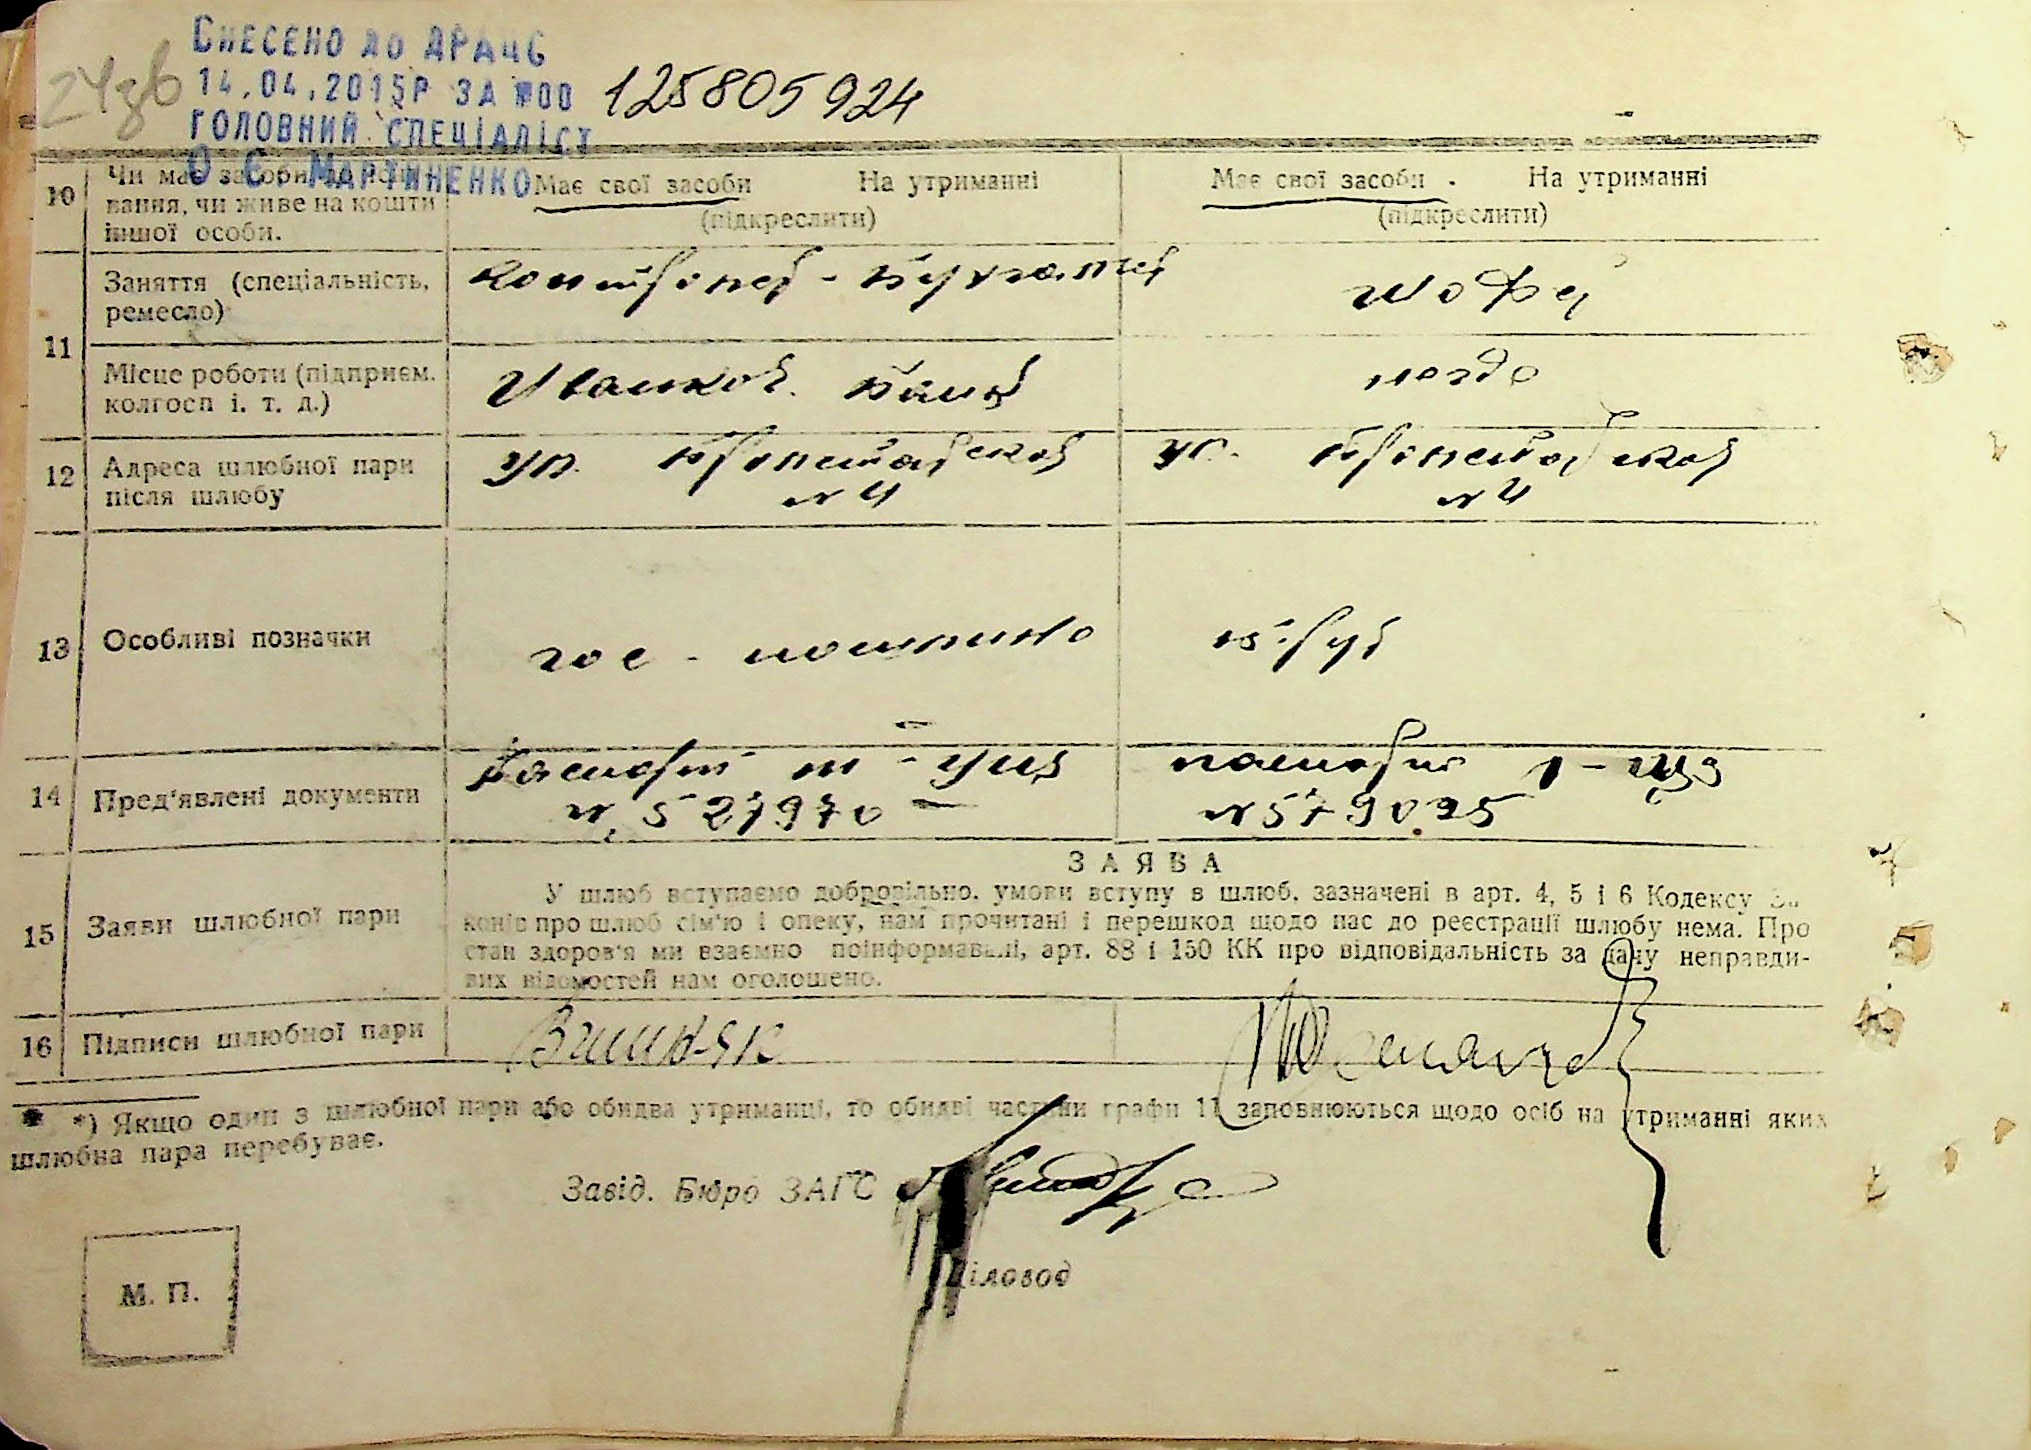 24зв
Внесено до ДРАЦС
14.04.2015р за №00 125805924
Головний спеціаліст
О.Є. Мартиненко
10 Чи має засоби до існу-
вання, чи живе на кошти
іншої особи.
Має свої засоби На утриманні
(підкреслити)
Має свої засоби На утриманні
(підкреслити)
11 Заняття (спеціальність,
ремесло)
контролер - бухгалтер
шофер
Місце роботи (підприєм.
колгосп і. т. д.)
банк
12 Адреса шлюбної пари
після шлюбу
ул. Кронштадской
№ 4
ул. Кронштадской
№ 4
13 Особливі позначки
гос - пошлина
руб
14 Пред'явлені документи
паспорт
№ 527970
паспорт
№ 579025
15 Заяви шлюбної пари
ЗАЯВА
У шлюб вступаємо добровільно, умови вступу в шлюб, зазначені в арт. 4, 5 і 6 Кодексу За-
конів про шлюб сім'ю і опеку, нам прочитані і перешкод щодо нас до реєстрації шлюбу нема. Про
стан здоров'я ми взаємно поінформавані, арт. 88 і 150 КК про відповідальність за дачу неправди-
вих відомостей нам оголошено.
16 Підписи шлюбної пари
*) Якщо один з шлюбної пари або обидва утриманці, то обидві частини графи 11 заповнюються щодо осіб на утриманні яких
шлюбна пара перебуває.
Завід. Бюро ЗАГС
Діловод
М. П.